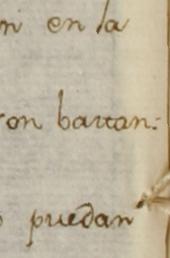 n en la
on barran:
puedan